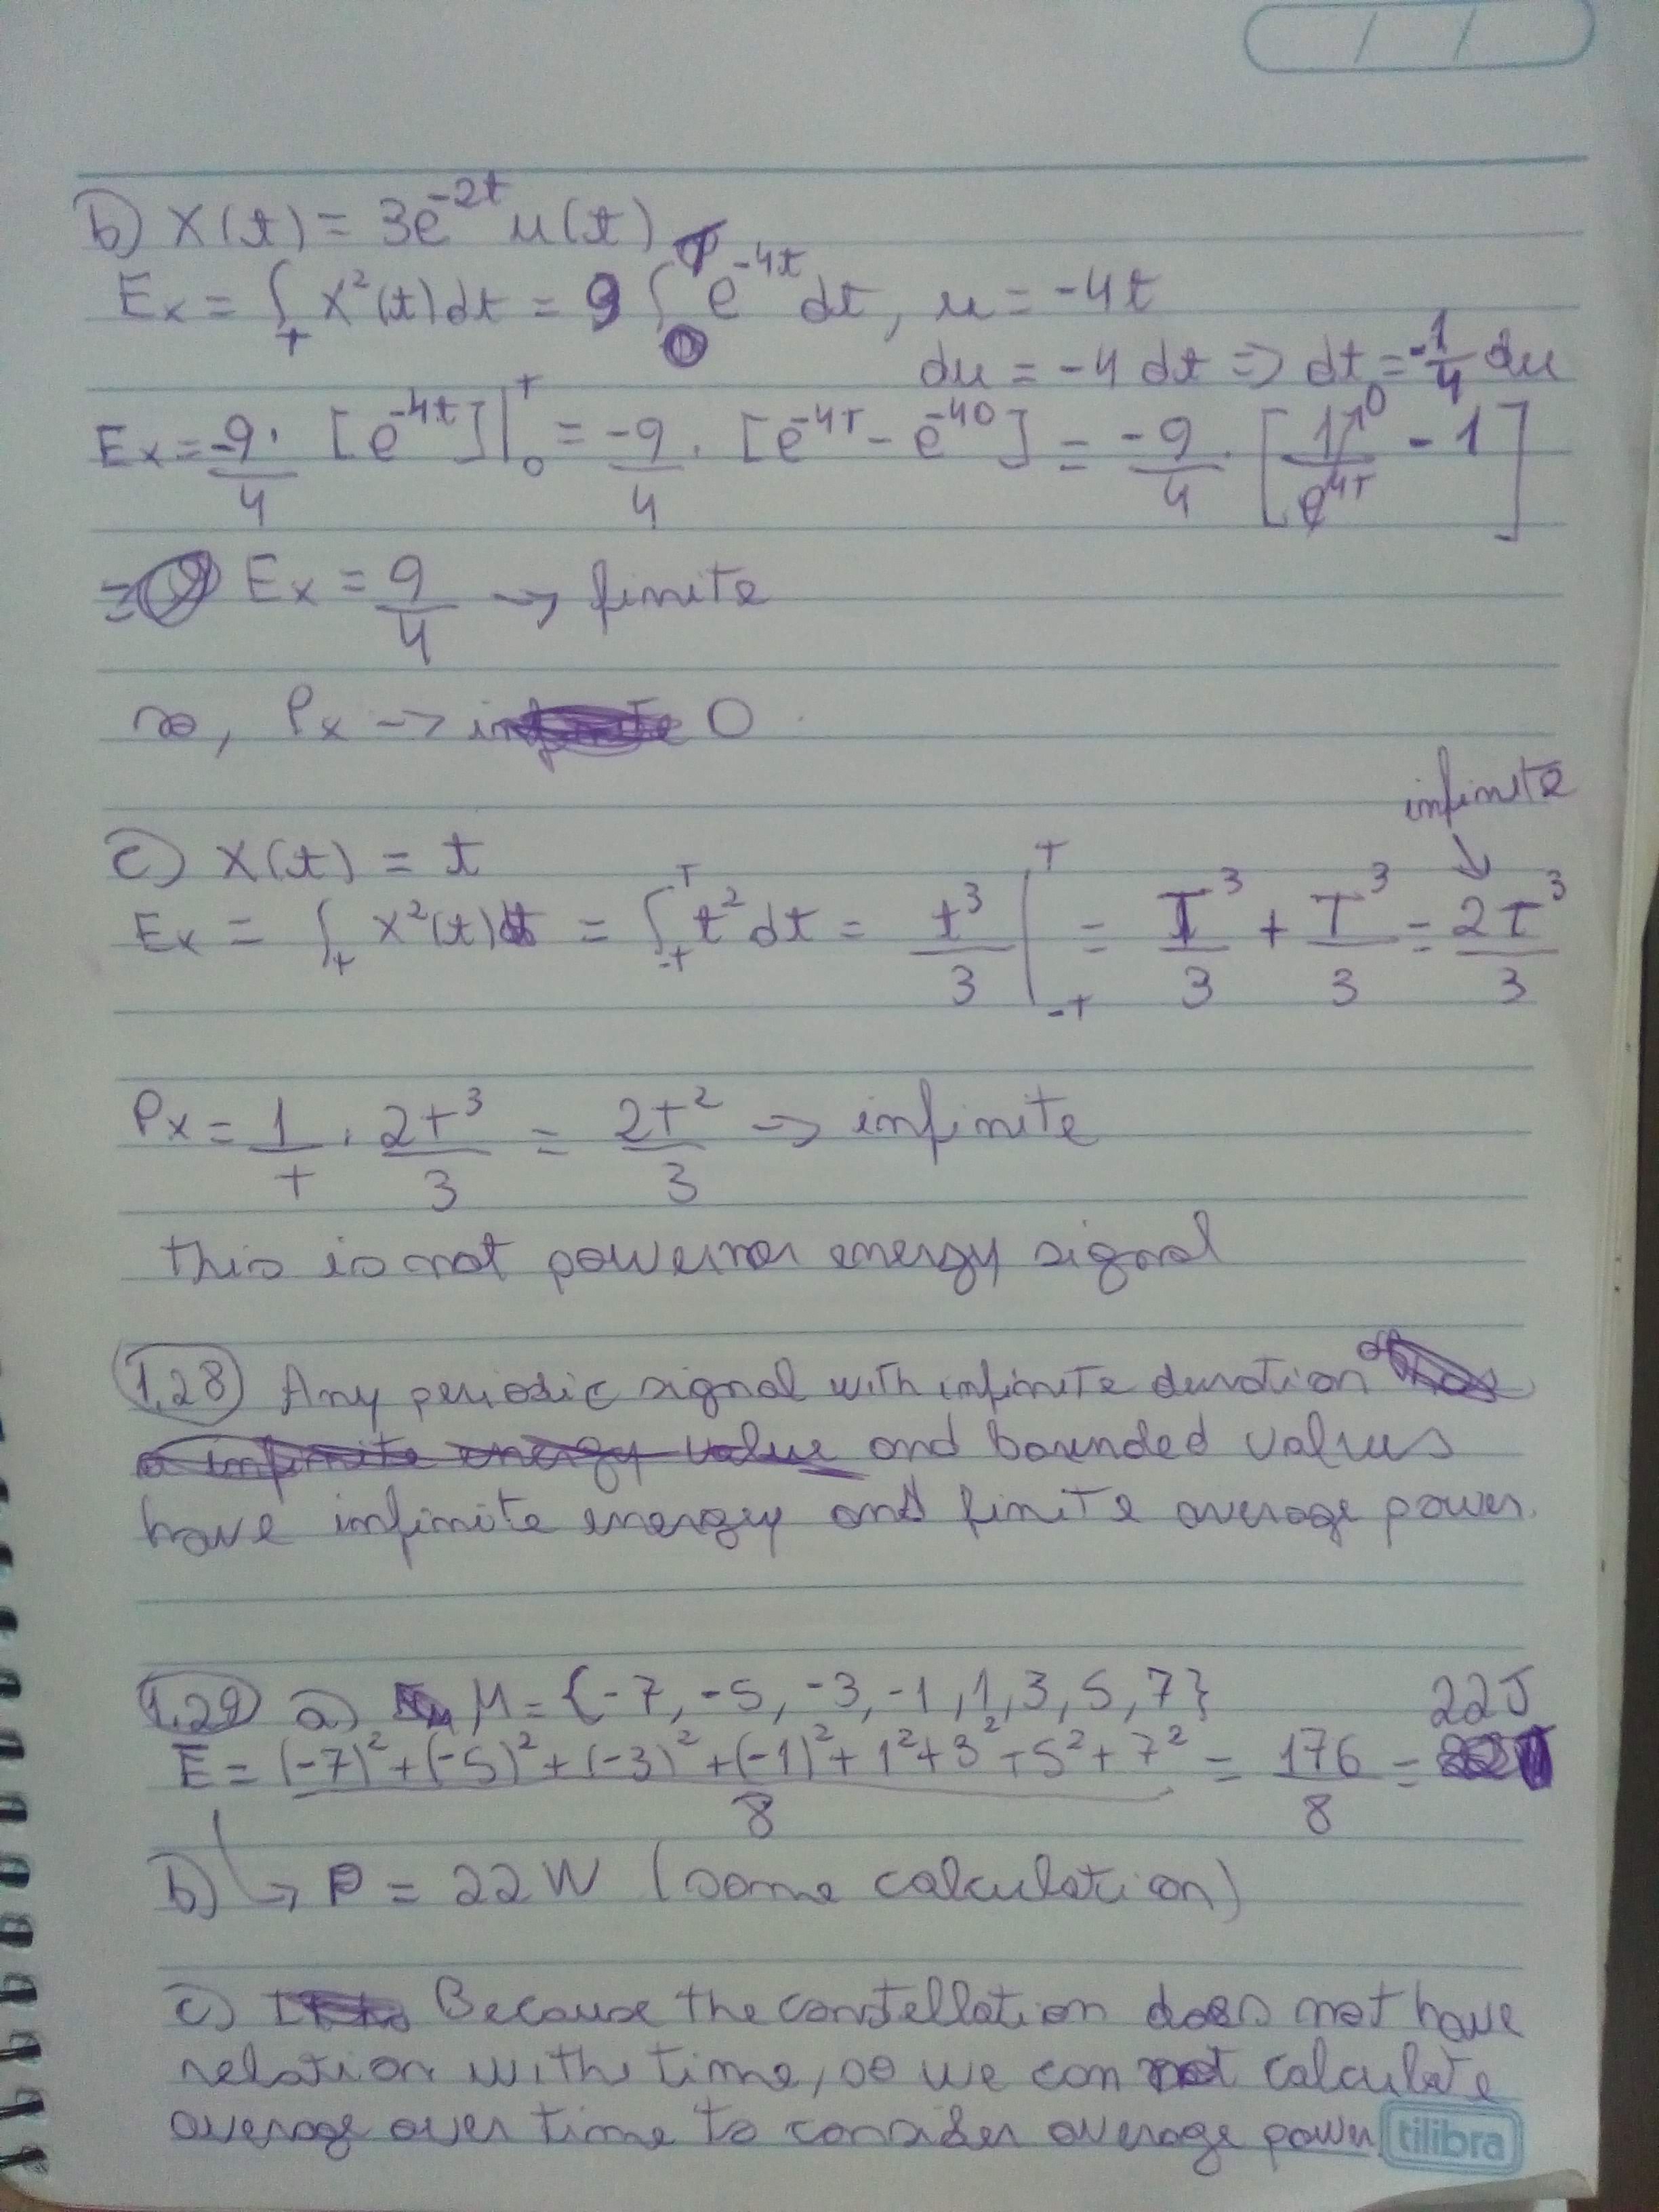 b) x(t) = 3e^-2t u(t)
Ex = ∫_T x²(t)dt = 9 ∫_0^T e^-4t dt, u = -4t
du = -4 dt => dt = -1/4 du
Ex = -9/4 · [e^-4t]|_0^T = -9/4 · [e^-4T - e^-40] = -9/4 · [1/e^4T ↗0 - 1]
=> Ex = 9/4 -> finite
so, Px -> 0
infinite
c) x(t) = t
Ex = ∫_T x²(t)dt = ∫_-T^T t² dt = t³/3 |_-T^T = T³/3 + T³/3 = 2T³/3
Px = 1/T · 2T³/3 = 2T²/3 -> infinite
this is not power nor energy signal
1.28 Any periodic signal with infinite duration of
and bounded values
have infinite energy and finite average power.
1.29 a) M = {-7, -5, -3, -1, 1, 3, 5, 7}
E = (-7)² + (-5)² + (-3)² + (-1)² + 1² + 3² + 5² + 7² / 8 = 176/8 = 22J
b) -> P = 22W (same calculation)
c) Because the constellation does not have
relation with time, so we can not calculate
average over time to consider average power.
tilibra